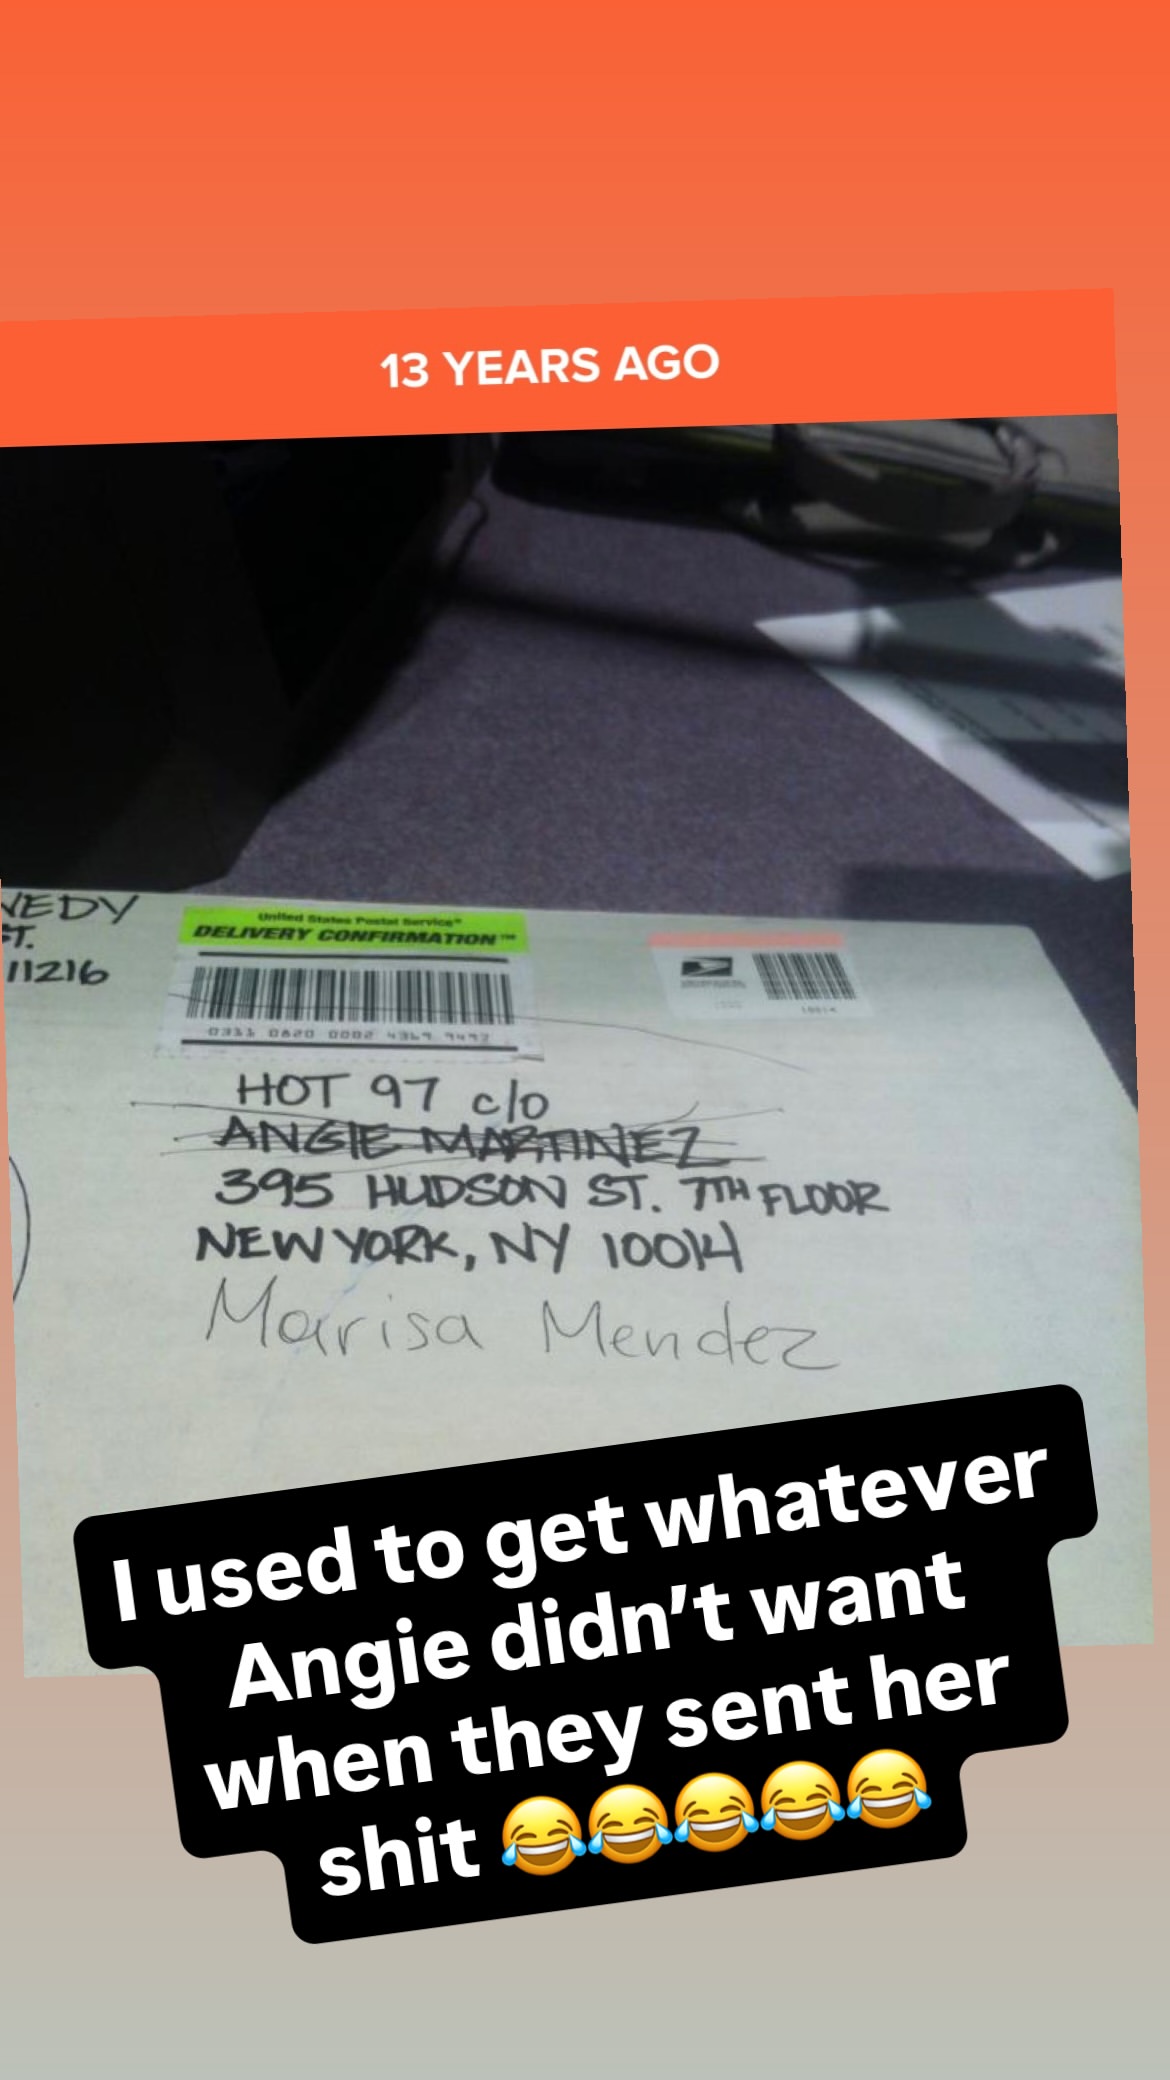 13 YEARS AGO
NEDY
ST.
11216
United States Postal Service®
DELIVERY CONFIRMATION™
0311 0820 0002 4369 9497
HOT 97 c/o
ANGIE MARTINEZ
395 HUDSON ST. 7TH FLOOR
NEW YORK, NY 10014
Marisa Mendez
I used to get whatever
Angie didn’t want
when they sent her
shit 😂😂😂😂😂